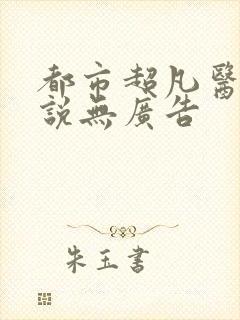 都市超凡醫
說無廣告
朱玉書